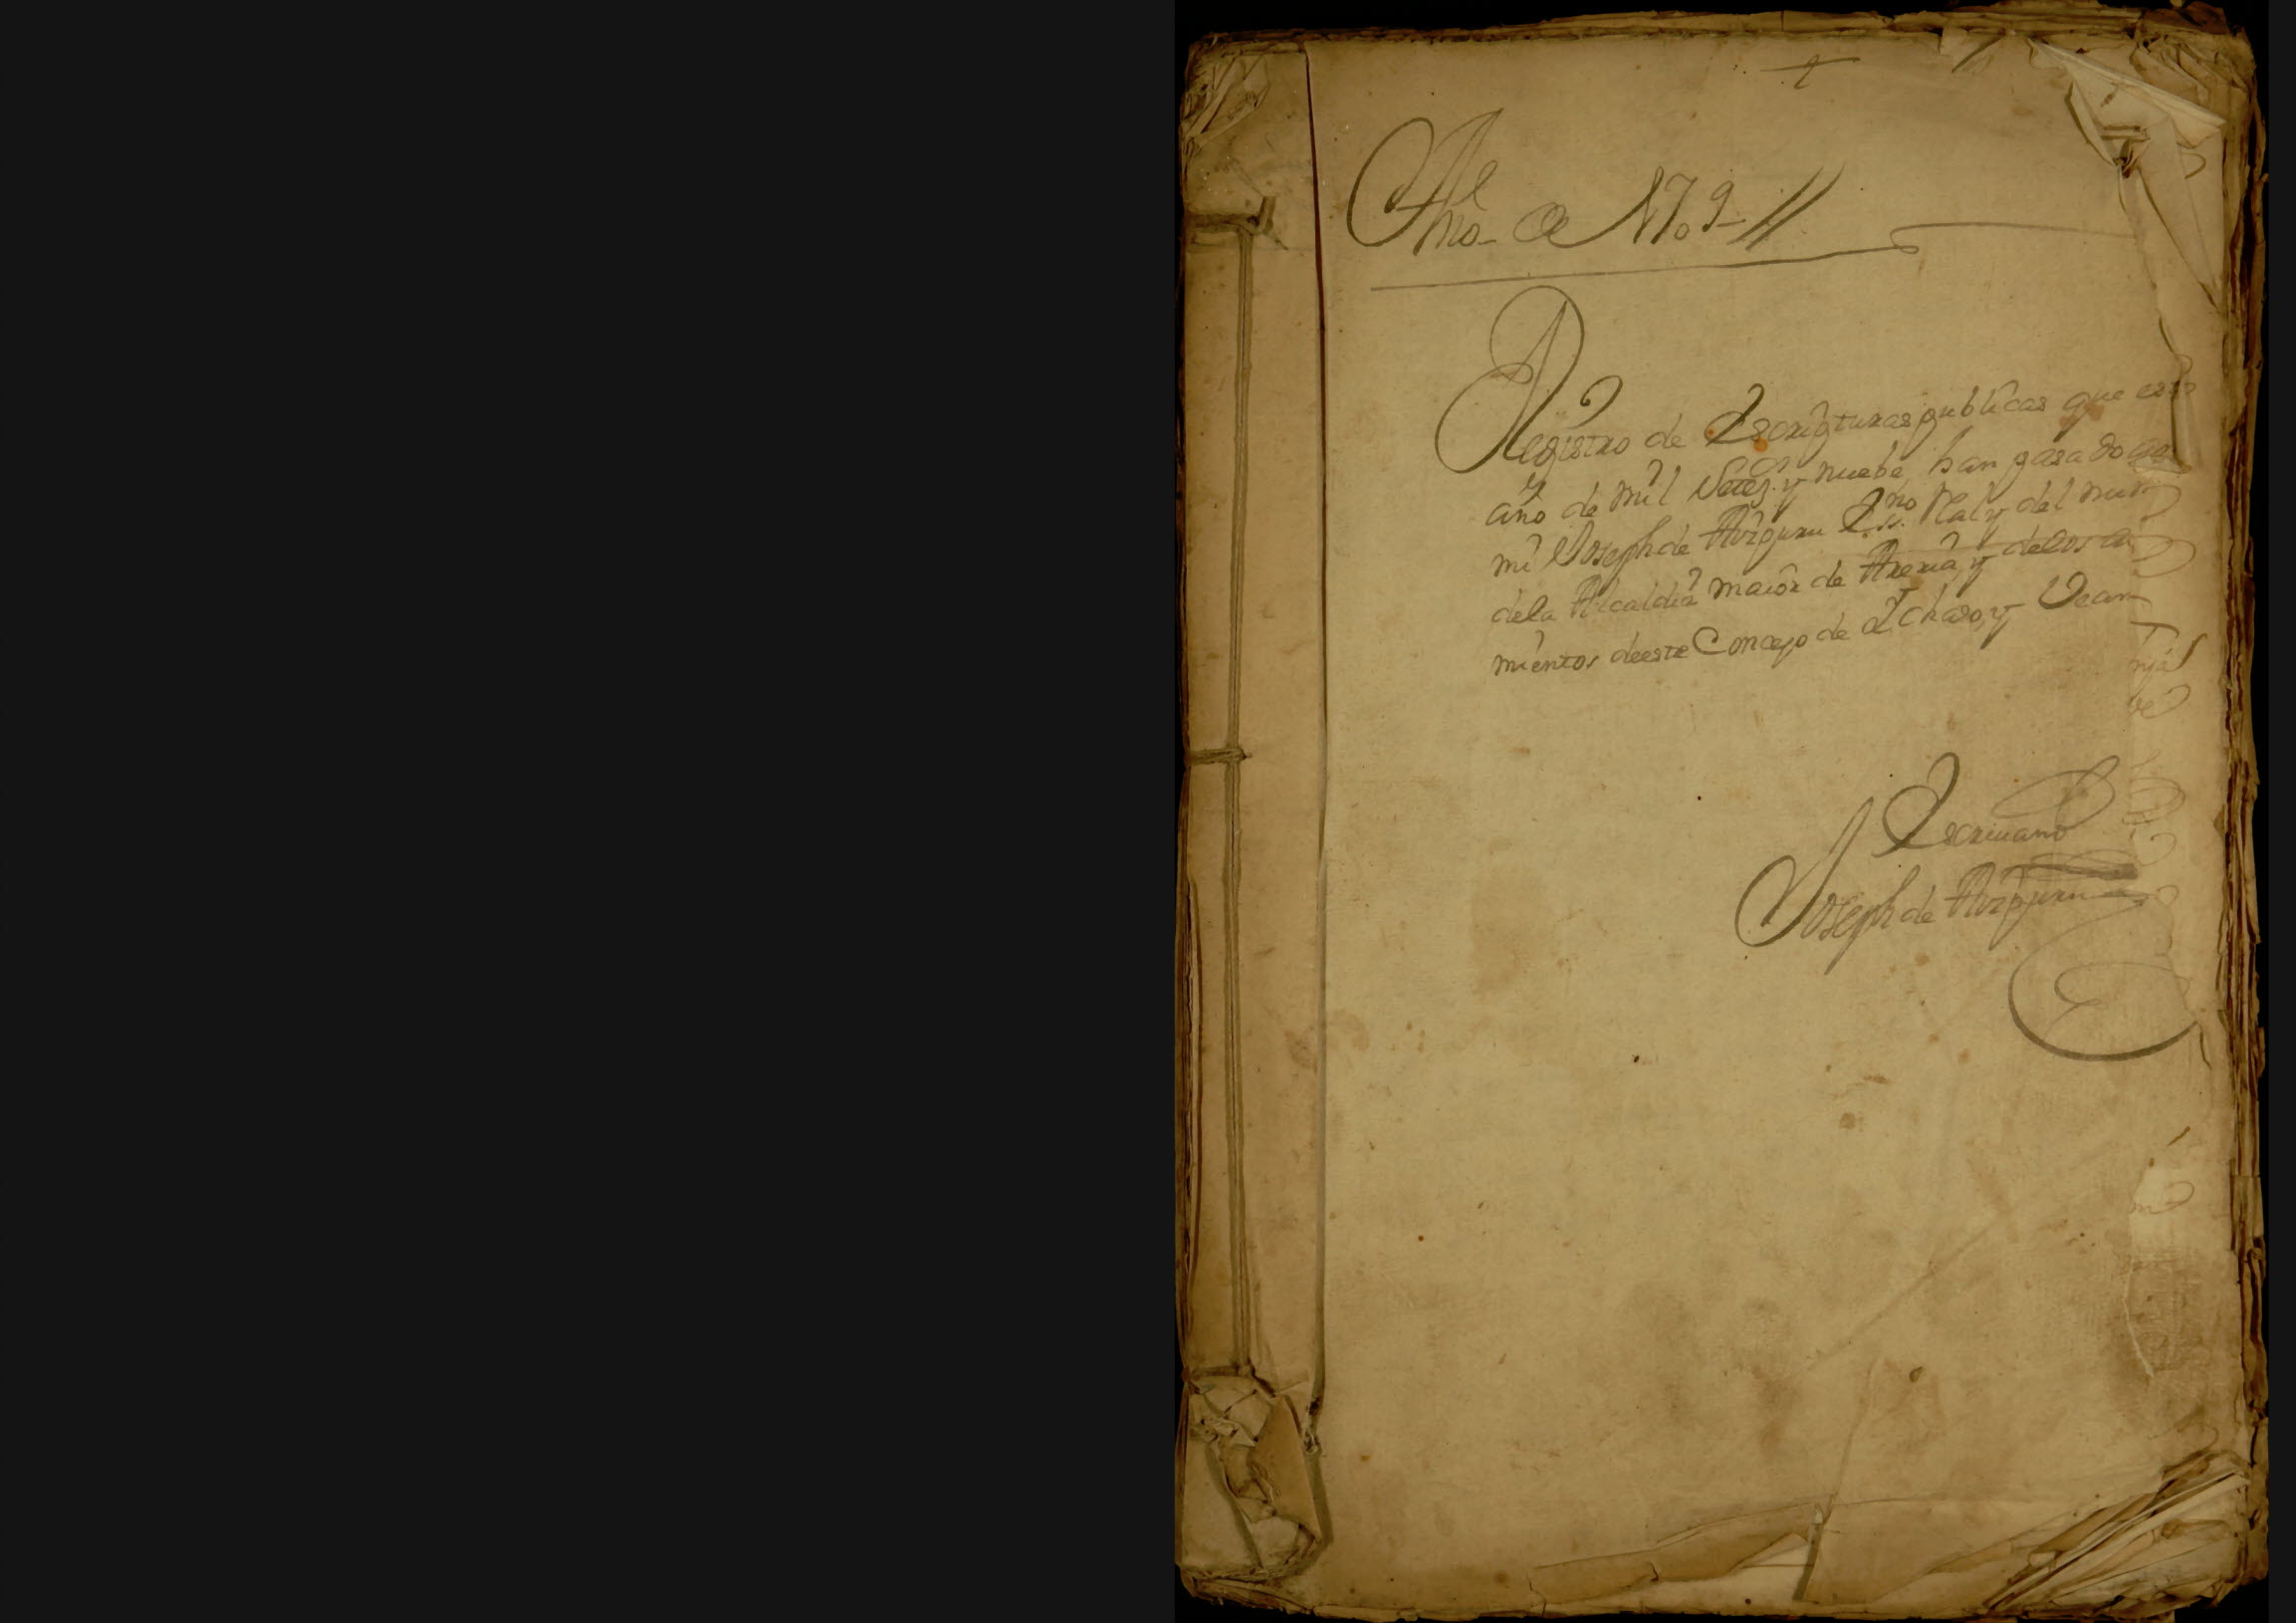 Año de 1709
Registro de Escripturas publicas que este
año de mil Setez.s y nuebe, han pasado
mi Joseph de Aizpuru Ess.no Real y del nu
dela Alcaldia maior de Areria, y delos
mientos deeste Concejo de Ychaso, y
Escriuano
Joseph de Aizpuru